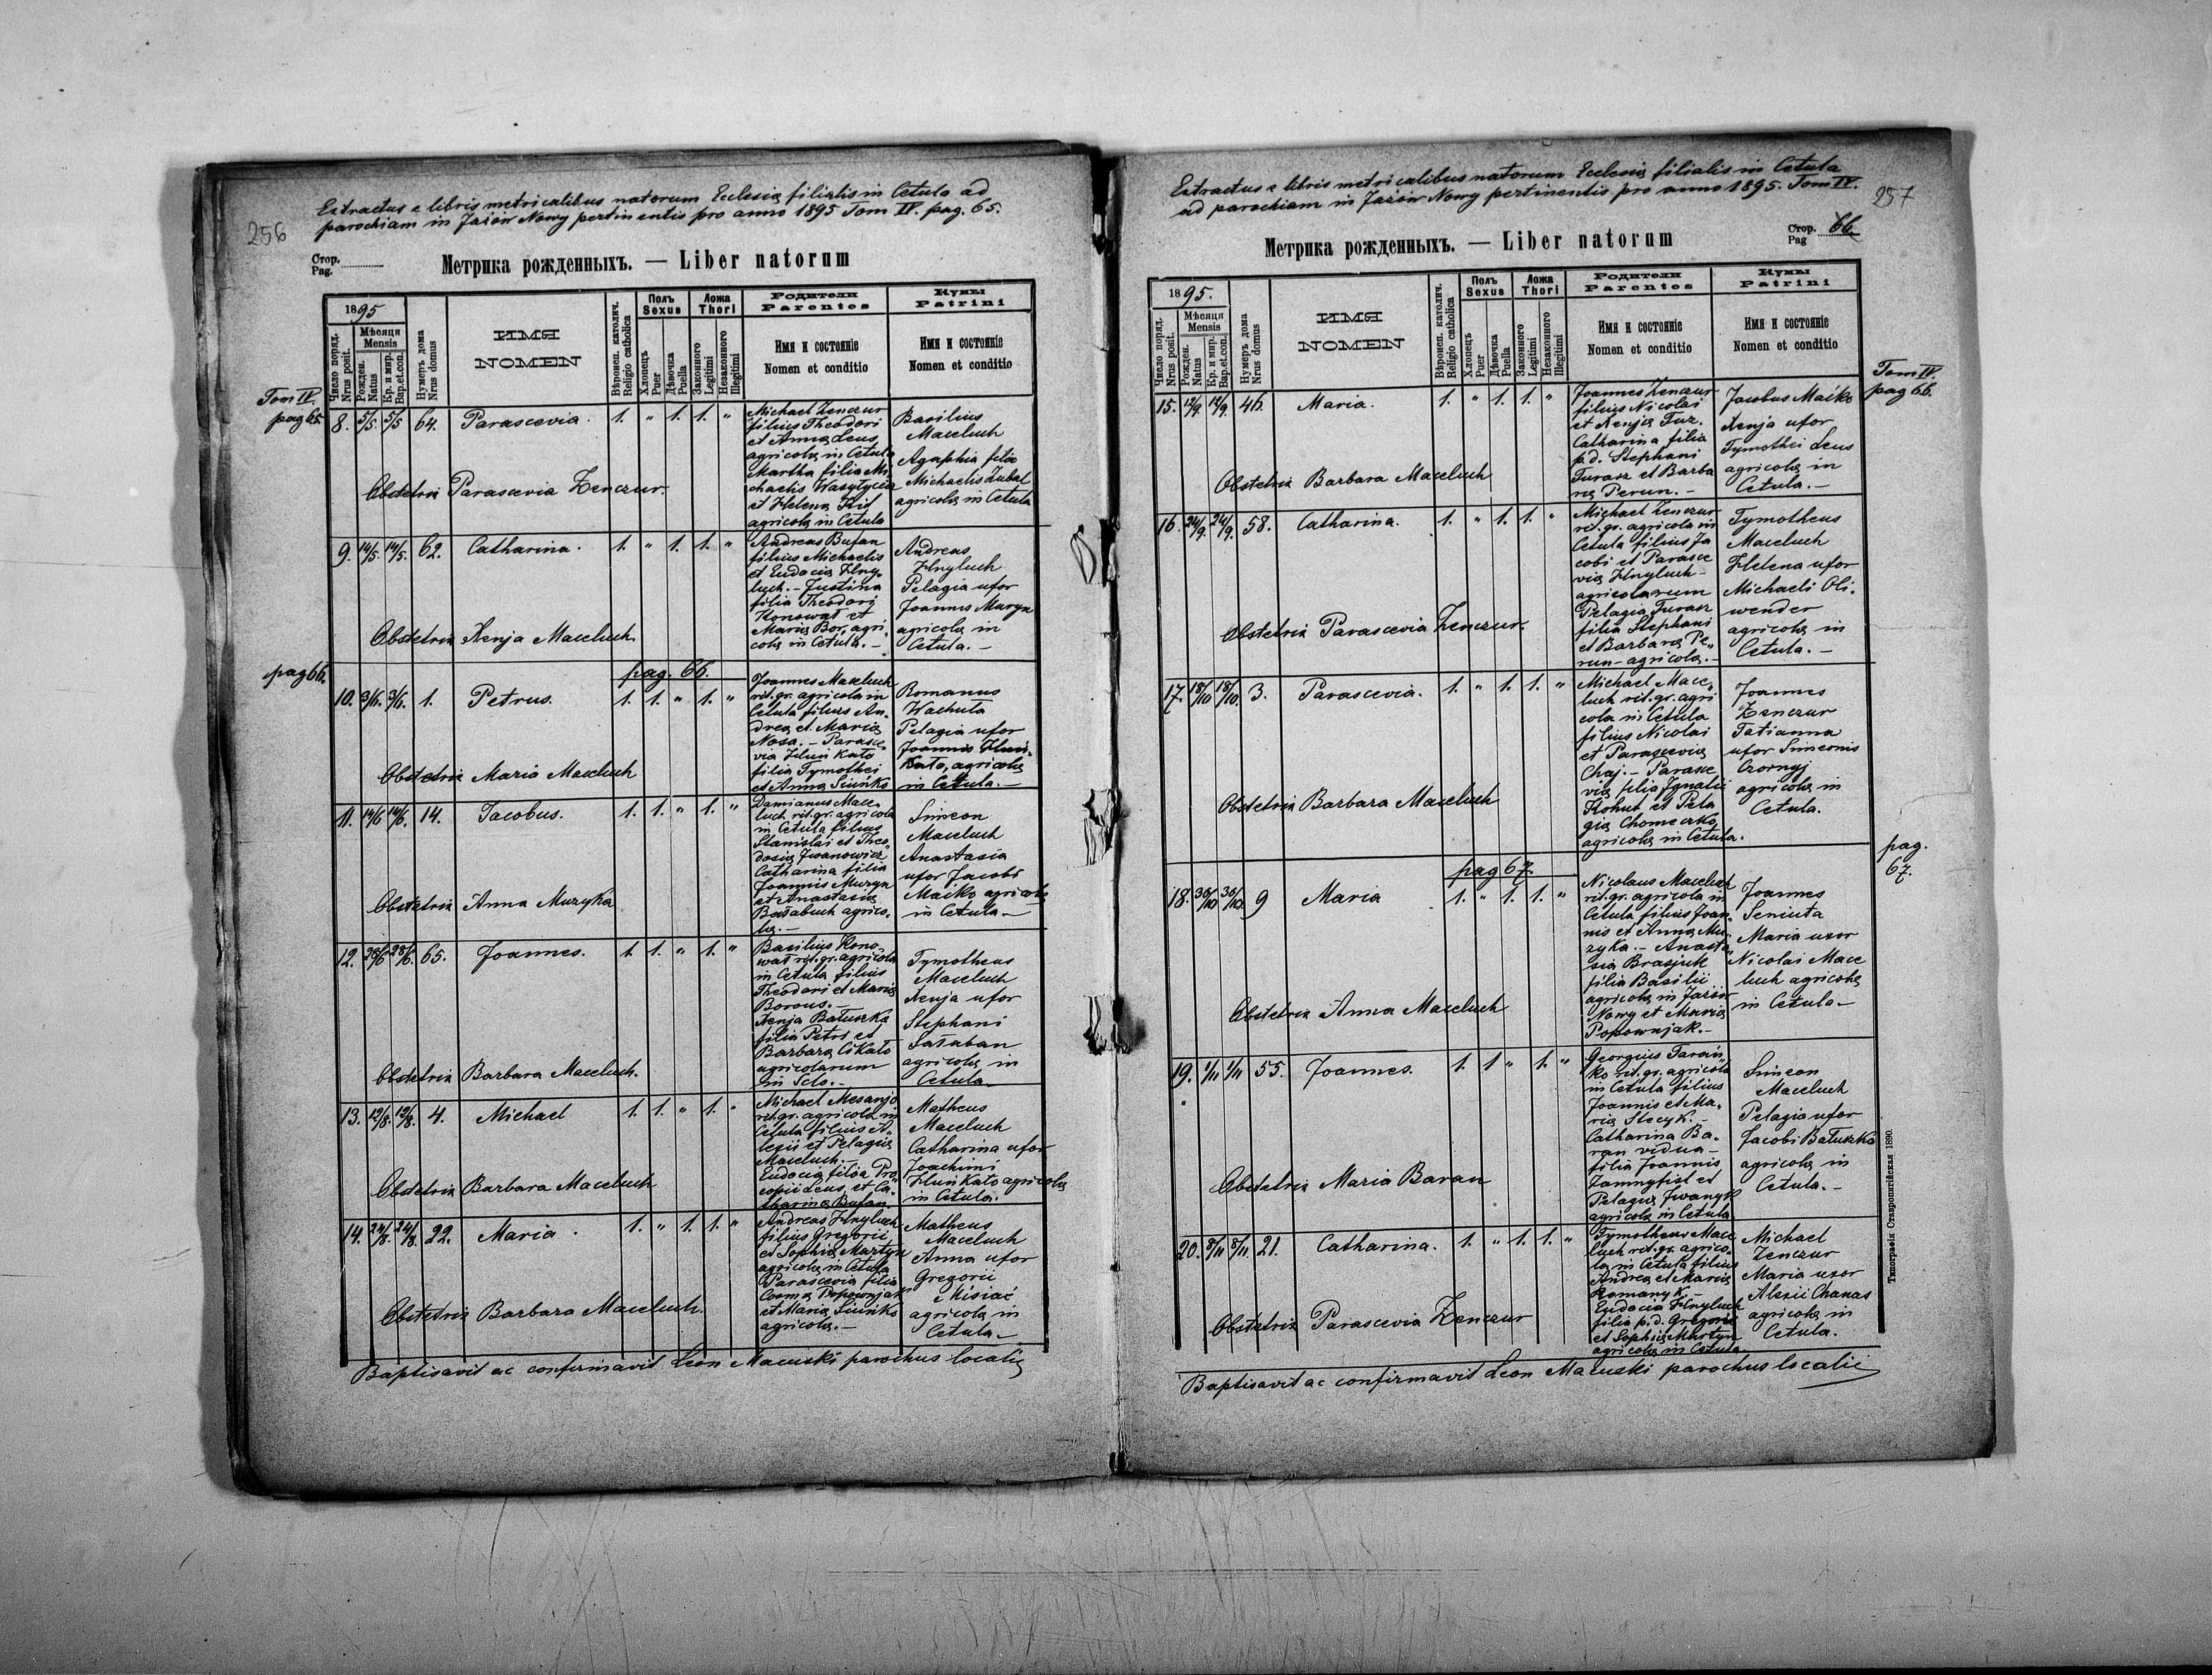 256
Extractus e libris metricalibus natorum Ecclesiæ filialis in Cetula ad
parochiam in Jazów Nowy pertinentis pro anno 1895 Tom IV. pag. 65.
Стор.
Pag.
Метрика рожденныхъ. — Liber natorum
1895
Число поряд. Nrus posit.
Мѣсяця Mensis
Рожден. Natus
Кр. и мир. Bap. et con.
Нумеръ дома Nrus domus
ИМЯ
NOMEN
Вѣроисп. католич. Religio catholica
Полъ Sexus
Хлопець Puer
Дѣвочка Puella
Ложа Thori
Законного Legitimi
Незаконного Illegitimi
Родители Parentes
Имя и состоянiе
Nomen et conditio
Кумы Patrini
Имя и состоянiе
Nomen et conditio
Tom IV.
pag 65.
8. 5/5. 5/5 64. Parascevia. 1. " 1. 1. "
Michael Zenczur
filius Theodori
et Anna Leus
agricola in Cetula
Martha filia Mi-
chaelis Wasylycia
et Helena
agricola in Cetula
Basilius
Maceluch
Agaphia filia
Michaelis Zubal
agricola in Cetula
Obstetrix Parascevia Zenczur.
9. 14/5. 14/5. 62. Catharina. 1. " 1. 1. "
Andreas Bufan
filius Michaelis
et Eudocia Hny-
luch. - Justina
filia Theodori
Konowat et
Maria Bor, agri-
cola in Cetula. -
Andreas
Hnyluch
Pelagia uxor
Joannis Muryn
agricola in
Cetula. -
Obstetrix Xenja Maceluch.
pag 66.
pag. 66.
10. 3/6. 3/6. 1. Petrus. 1. 1. " 1. "
Joannes Maceluch
rit. gr. agricola in
Cetula filius An-
drea et Maria
Nosa. - Parasce-
via Hluń Kato
filia Tymothei
et Anna Siuńko
Romanus
Wachuta
Pelagia uxor
Joannis Hluń-
Kato, agricola
in Cetula. -
Obstetrix Maria Maceluch
11. 14/6 14/6. 14. Jacobus. 1. 1. " 1. "
Damianus Mace-
luch rit. gr. agricola
in Cetula filius
Stanislai et Theo-
dosia Iwanowicz
Catharina filia
Joannis Muryn
et Anastasia
Bałabuch agrico-
la. -
Simeon
Maceluch
Anastasia
uxor Jacobi
Maiko agricola
in Cetula -
Obstetrix Anna Muzyka
12. 28/6 28/6. 65. Joannes. 1. 1. " 1. "
Basilius Kono-
wat rit. gr. agricola
in Cetula filius
Theodori et Maria
Borous. -
Xenja Batuszka
filia Petri et
Barbara Cikało
agricolarum
in Sclo. -
Tymotheus
Maceluch
Xenja uxor
Stephani
Sałaban
agricola in
Cetula
Obstetrix Barbara Maceluch.
13. 12/8. 12/8. 4. Michael 1. 1. " 1. "
Michael Mesanjo
rit. gr. agricola in
Cetula filius A-
lexii et Pelagia
Maceluch. -
Eudocia filia Pro-
copii Leus et Ca-
tharina Bufan.
Matheus
Maceluch
Catharina uxor
Joachimi
Hluń Kato agricola
in Cetula.
Obstetrix Barbara Maceluch
14. 24/8. 24/8. 22. Maria. 1. " 1. 1. "
Andreas Hnyluch
filius Gregorii
et Sophia Martyn
agricola in Cetula
Parascevia filia
Cosma Popownjak
et Maria Siuńko
agricola. -
Matheus
Maceluch
Anna uxor
Gregorii
Misiac
agricola in
Cetula -
Obstetrix Barbara Maceluch.
Baptisavit ac confirmavit Leon Macuski parochus localis
257
Extractus e libris metricalibus natorum Ecclesiæ filialis in Cetula
ad parochiam in Jazów Nowy pertinentis pro anno 1895. Tom IV.
Стор.
Pag 66.
Метрика рожденныхъ. — Liber natorum
1895.
Число поряд. Nrus posit.
Мѣсяця Mensis
Рожден. Natus
Кр. и мир. Bap. et con.
Нумеръ дома Nrus domus
ИМЯ
NOMEN
Вѣроисп. католич. Religio catholica
Полъ Sexus
Хлопець Puer
Дѣвочка Puella
Ложа Thori
Законного Legitimi
Незаконного Illegitimi
Родители Parentes
Имя и состоянiе
Nomen et conditio
Кумы Patrini
Имя и состоянiе
Nomen et conditio
Tom IV.
pag 66.
15. 12/9. 12/9. 46. Maria. 1. " 1. 1. "
Joannes Zenczur
filius Nicolai
et Xenja Fuz.
Catharina filia
p. d. Stephani
Furasz et Barba
ra Perun. -
Jacobus Maiko
Xenja uxor
Tymothei Leus
agricola in
Cetula. -
Obstetrix Barbara Maceluch
16. 24/9. 24/9. 58. Catharina. 1. " 1. 1. "
Michael Zenczur
rit. gr. agricola in
Cetula filius Ja
cobi et Parasce
via Hnyluch -
agricolarum
Pelagia Furasz
filia Stephani
et Barbara Pe-
run - agricola. -
Tymotheus
Maceluch
Helena uxor
Michaeli Oli-
wender
agricola in
Cetula. -
Obstetrix Parascevia Zenczur.
17. 18/10 18/10. 3. Parascevia. 1. " 1. 1. "
Michael Mace-
luch rit. gr. agri
cola in Cetula
filius Nicolai
et Parascevia
Chaj. - Parasce
via filia Ignatii
Kohut et Pela
gia Chomeczko,
agricola in Cetula.
Joannes
Zenczur
Tatianna
uxor Simeonis
Czornyj
agricola in
Cetula.
Obstetrix Barbara Maceluch
pag.
67.
pag 67.
18. 30/10 30/10. 9 Maria 1. " 1. 1. "
Nicolaus Maceluch
rit. gr. agricola in
Cetula filius Joan-
nis et Anna Mu-
zyka. - Anasta-
sia Brasjuk
filia Basilii
agricola in Jazów
Nowy et Maria
Popownjak. -
Joannes
Seniuta
Maria uxor
Nicolai Mace
luch agricola
in Cetula -
Obstetrix Anna Maceluch
19. 1/11 1/11 55. Joannes. 1. 1 " 1. "
Georgius Tarań-
ko rit. gr. agricola
in Cetula filius
Joannis et Ma-
ria Stecyk. -
Catharina Ba-
ran vidua -
filia Joannis
Zamnyfist et
Pelagia Iwanyk
agricola in Cetula
Simeon
Maceluch
Pelagia uxor
Jacobi Batuszka
agricola in
Cetula. -
Obstetrix Maria Baran
20. 8/11 8/11. 21. Catharina. 1. " 1. 1. "
Tymotheus Mace
luch rit. gr. agrico-
la in Cetula filius
Andrea et Maria
Romanyk. -
Eudocia Hnyluch
filia p. d. Gregorii
et Sophia Martyn
agricola in Cetula
Michael
Zenczur
Maria uxor
Alexii Chanas
agricola in
Cetula.
Obstetrix Parascevia Zenczur
Baptisavit ac confirmavit Leon Macuski parochus localis
Типографiя Ставропигiйская 1890.